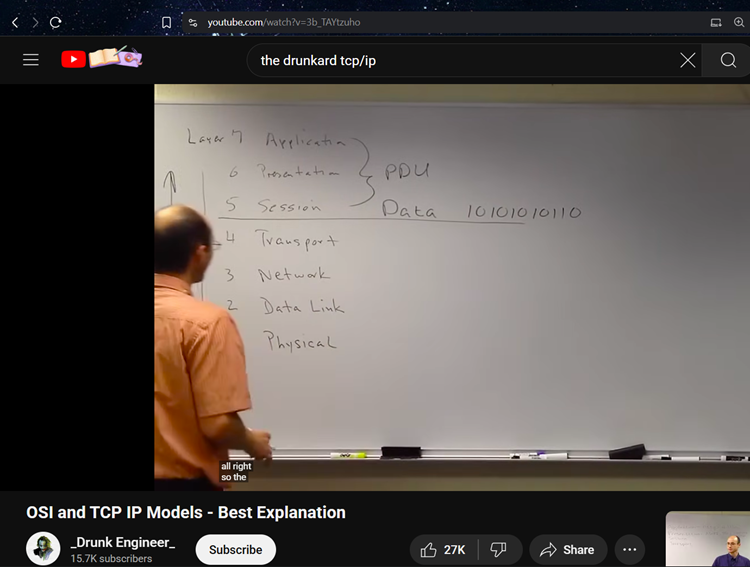 youtube.com/watch?v=3b_TAYtzuho
the drunkard tcp/ip
Layer 7 Application
6 Presentation
5 Session
PDU
Data 10101010110
4 Transport
3 Network
2 Data Link
Physical
all right
so the
OSI and TCP IP Models - Best Explanation
_Drunk Engineer_
15.7K subscribers
Subscribe
27K
Share